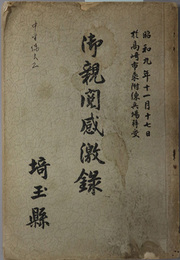 昭和九年十一月十七日
於高崎市乗附練兵場拝受
御親閲感激録
埼玉縣